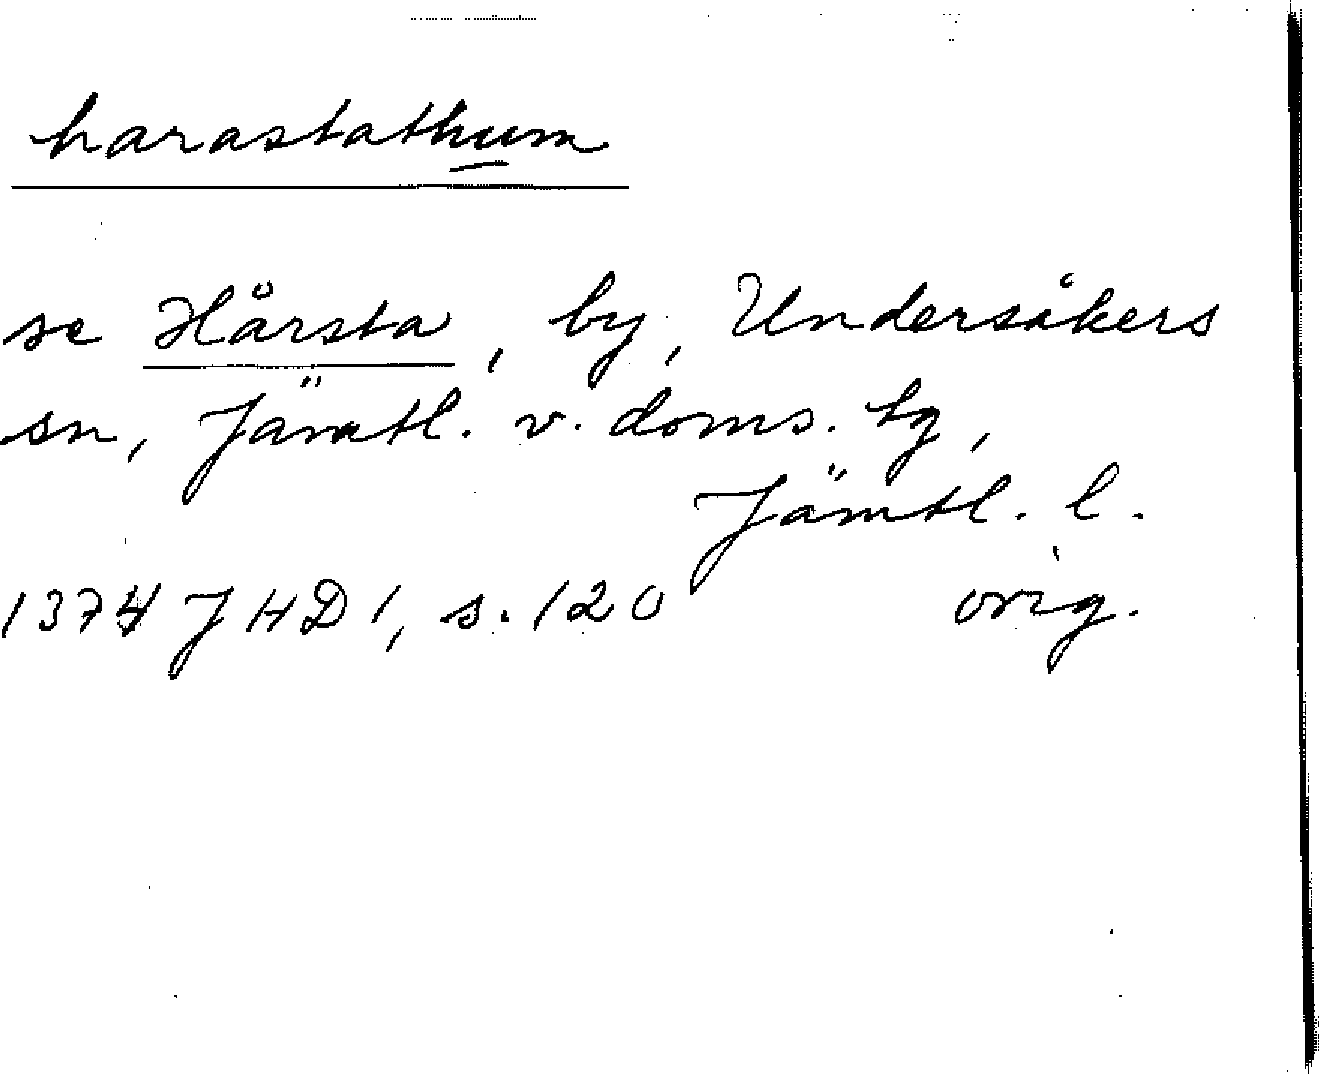 harastathum
se Hårsta, by, Undersåkers
sn, Jämtl. v. doms. tg,
Jämtl. l.
1374 JHD 1, s. 120 orig.